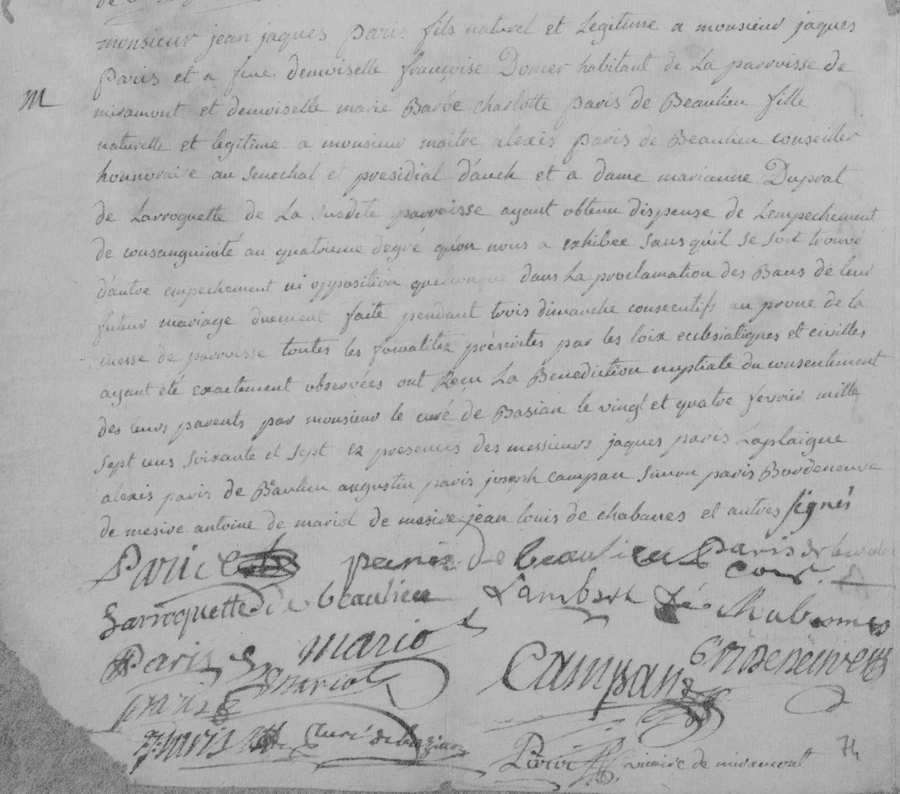 monsieur jean jaques paris fils naturel et legitime a monsieur jaques
paris et a feue demoiselle françoise Domer habitant de La parroisse de
M
miramont et demoiselle marie Barbe charlotte paris de Beaulieu fille
naturelle et legitime a monsieur maitre alexis paris de Beaulieu conseiller
honnoraire au senechal et presidial d'auch et a dame marianne Duprat
de Larroquette de La susdite parroisse ayant obtenu dispense de Lempechement
de consanguinité au quatrieme degré qu'on nous a exhibee sans quil se soit trouvé
d'autre empechement ni opposition quelconque dans La proclamation des Bans de leur
futur mariage duement faite pendant trois dimanche consecutifs au prone de la
messe de parroisse toutes les formalitez préscrites par les loix eclesiatiques et civilles
ayant été exactement observées ont Recu La Benediction nuptiale du consentement
des leurs parents par monsieur le curé de Basian le vingt et quatre fevrier mille
sept cens soixante et sept ez présences des messieurs jaques paris Laplaigne
alexis paris de Baulieu augustin paris joseph campan simon paris Bordeneuve
de mesive antoine de mariol de mesive jean louis de chabanes et autres signés
Paris paris de beaulieu Paris de
cons.
Larroquette de beaulieu Lambert Chabannes
Paris mariol
mariol Campan Bordeneuve
paris
paris curé de bazian
Paris vicaire de miramont
74